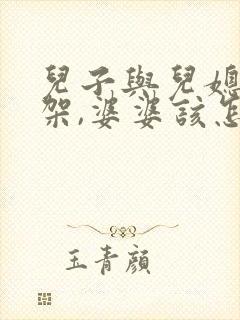 兒子與兒媳
架,婆婆該怎
玉青顏